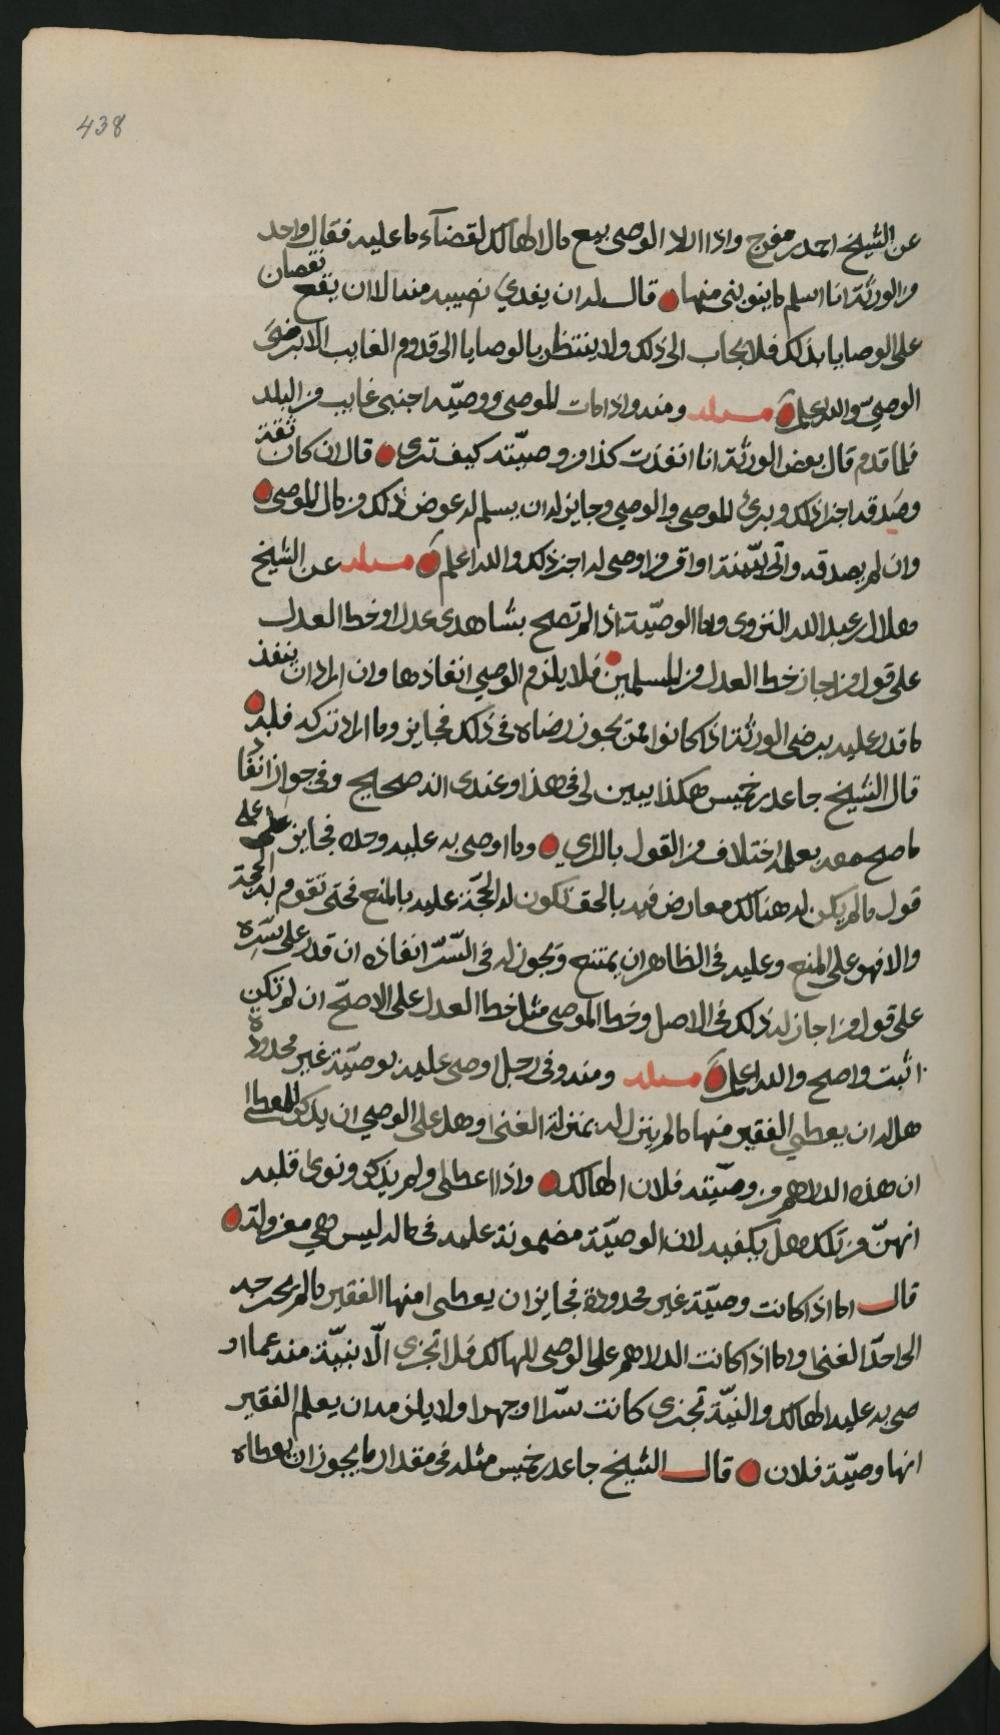 438
عن الشيخ احمد بن مفرج واذا اراد الوصي بيع مال الهالك لقضآء ما عليه فقال واحد
من الورثة انا اسلم ما ينوبني منها قال له ان يفدي نصيبه منه الا ان يقع نقصان
على الوصايا بذلك فلا يجاب الى ذلك ولا ينتظر بالوصايا الى قدوم الغايب الا برضى
الوصيّ والله اعلم مسئلة ومنه واذا مات الموصي ووصيّه اجنبي غايب من البلد
فلما قدم قال بعض الورثة انا انفذت كذا من وصيّته كيف ترى قال ان كان ثقة
وصدقه اجزا ذلك وبرئ الموصي والوصي وجايز له ان يسلم له عوض ذلك من مال الموصي
وان لم يصدقه واتى ببيّنة او اقر من اوصي له اجزا ذلك والله اعلم مسئلة عن الشيخ
هلال بن عبدالله النزوى واما الوصيّة اذا لم تصح بشاهدى عدل او خط العدل
على قول من اجاز خط العدل من المسلمين فلا يلزم الوصي انفاذها وان اراد ان ينفذ
ما قدر عليه برضى الورثة اذا كانوا ممن يجوز رضاه في ذلك فجايز وما اراد تركه فله
قال الشيخ جاعد بن خميس هكذا يبين لي في هذا وعندى انه صحيح وفي جواز انفاذ
ما صح معه بعلمه اختلاف من القول بالراي وما اوصى به عليه وحده فجايز على
قول ما لم يكن له هنالك معارض فيه بالحق تكون له الحجّة عليه بالمنع فحتى تقوم له الحجة
والا فهو على المنع وعليه في الظاهر ان يمتنع ويجوز له في السّرّ انفاذه ان قدر على سّره
على قول من اجاز له ذلك في الاصل وخط الموصي مثل خط العدل على الاصحّ ان لم تكن
اثبت واصح والله اعلم مسئلة ومنه وفي رجل اوصى عليه بوصيّة غير محدودة
هل له ان يعطي الفقير منها ما لم ينزل له بمنزلة الغنى وهل على الوصي ان يذكر للمعطا
ان هذه الدراهم من وصيّته فلان الهالك واذا اعطى ولم يذكر ونوى قلبه
انهنّ من تلك هل يكفيه لان الوصيّة مضمونة عليه في ماله ليس هي معزولة
قال اما اذا كانت وصيّة غير محدودة فجايز ان يعطى منها الفقير ما لم يخرجه
الى حدّ الغنى واما اذا كانت الدراهم على الوصي للهالك فلا تجزى الّا بنيّة منه عما او
صى به عليه الهالك والنيّة تجزى كانت سّرا او جهرا ولا يلزمه ان يعلم الفقير
انها وصيّة فلان قال الشيخ جاعد بن خميس مثله في مقدار ما يجوز ان يعطاه